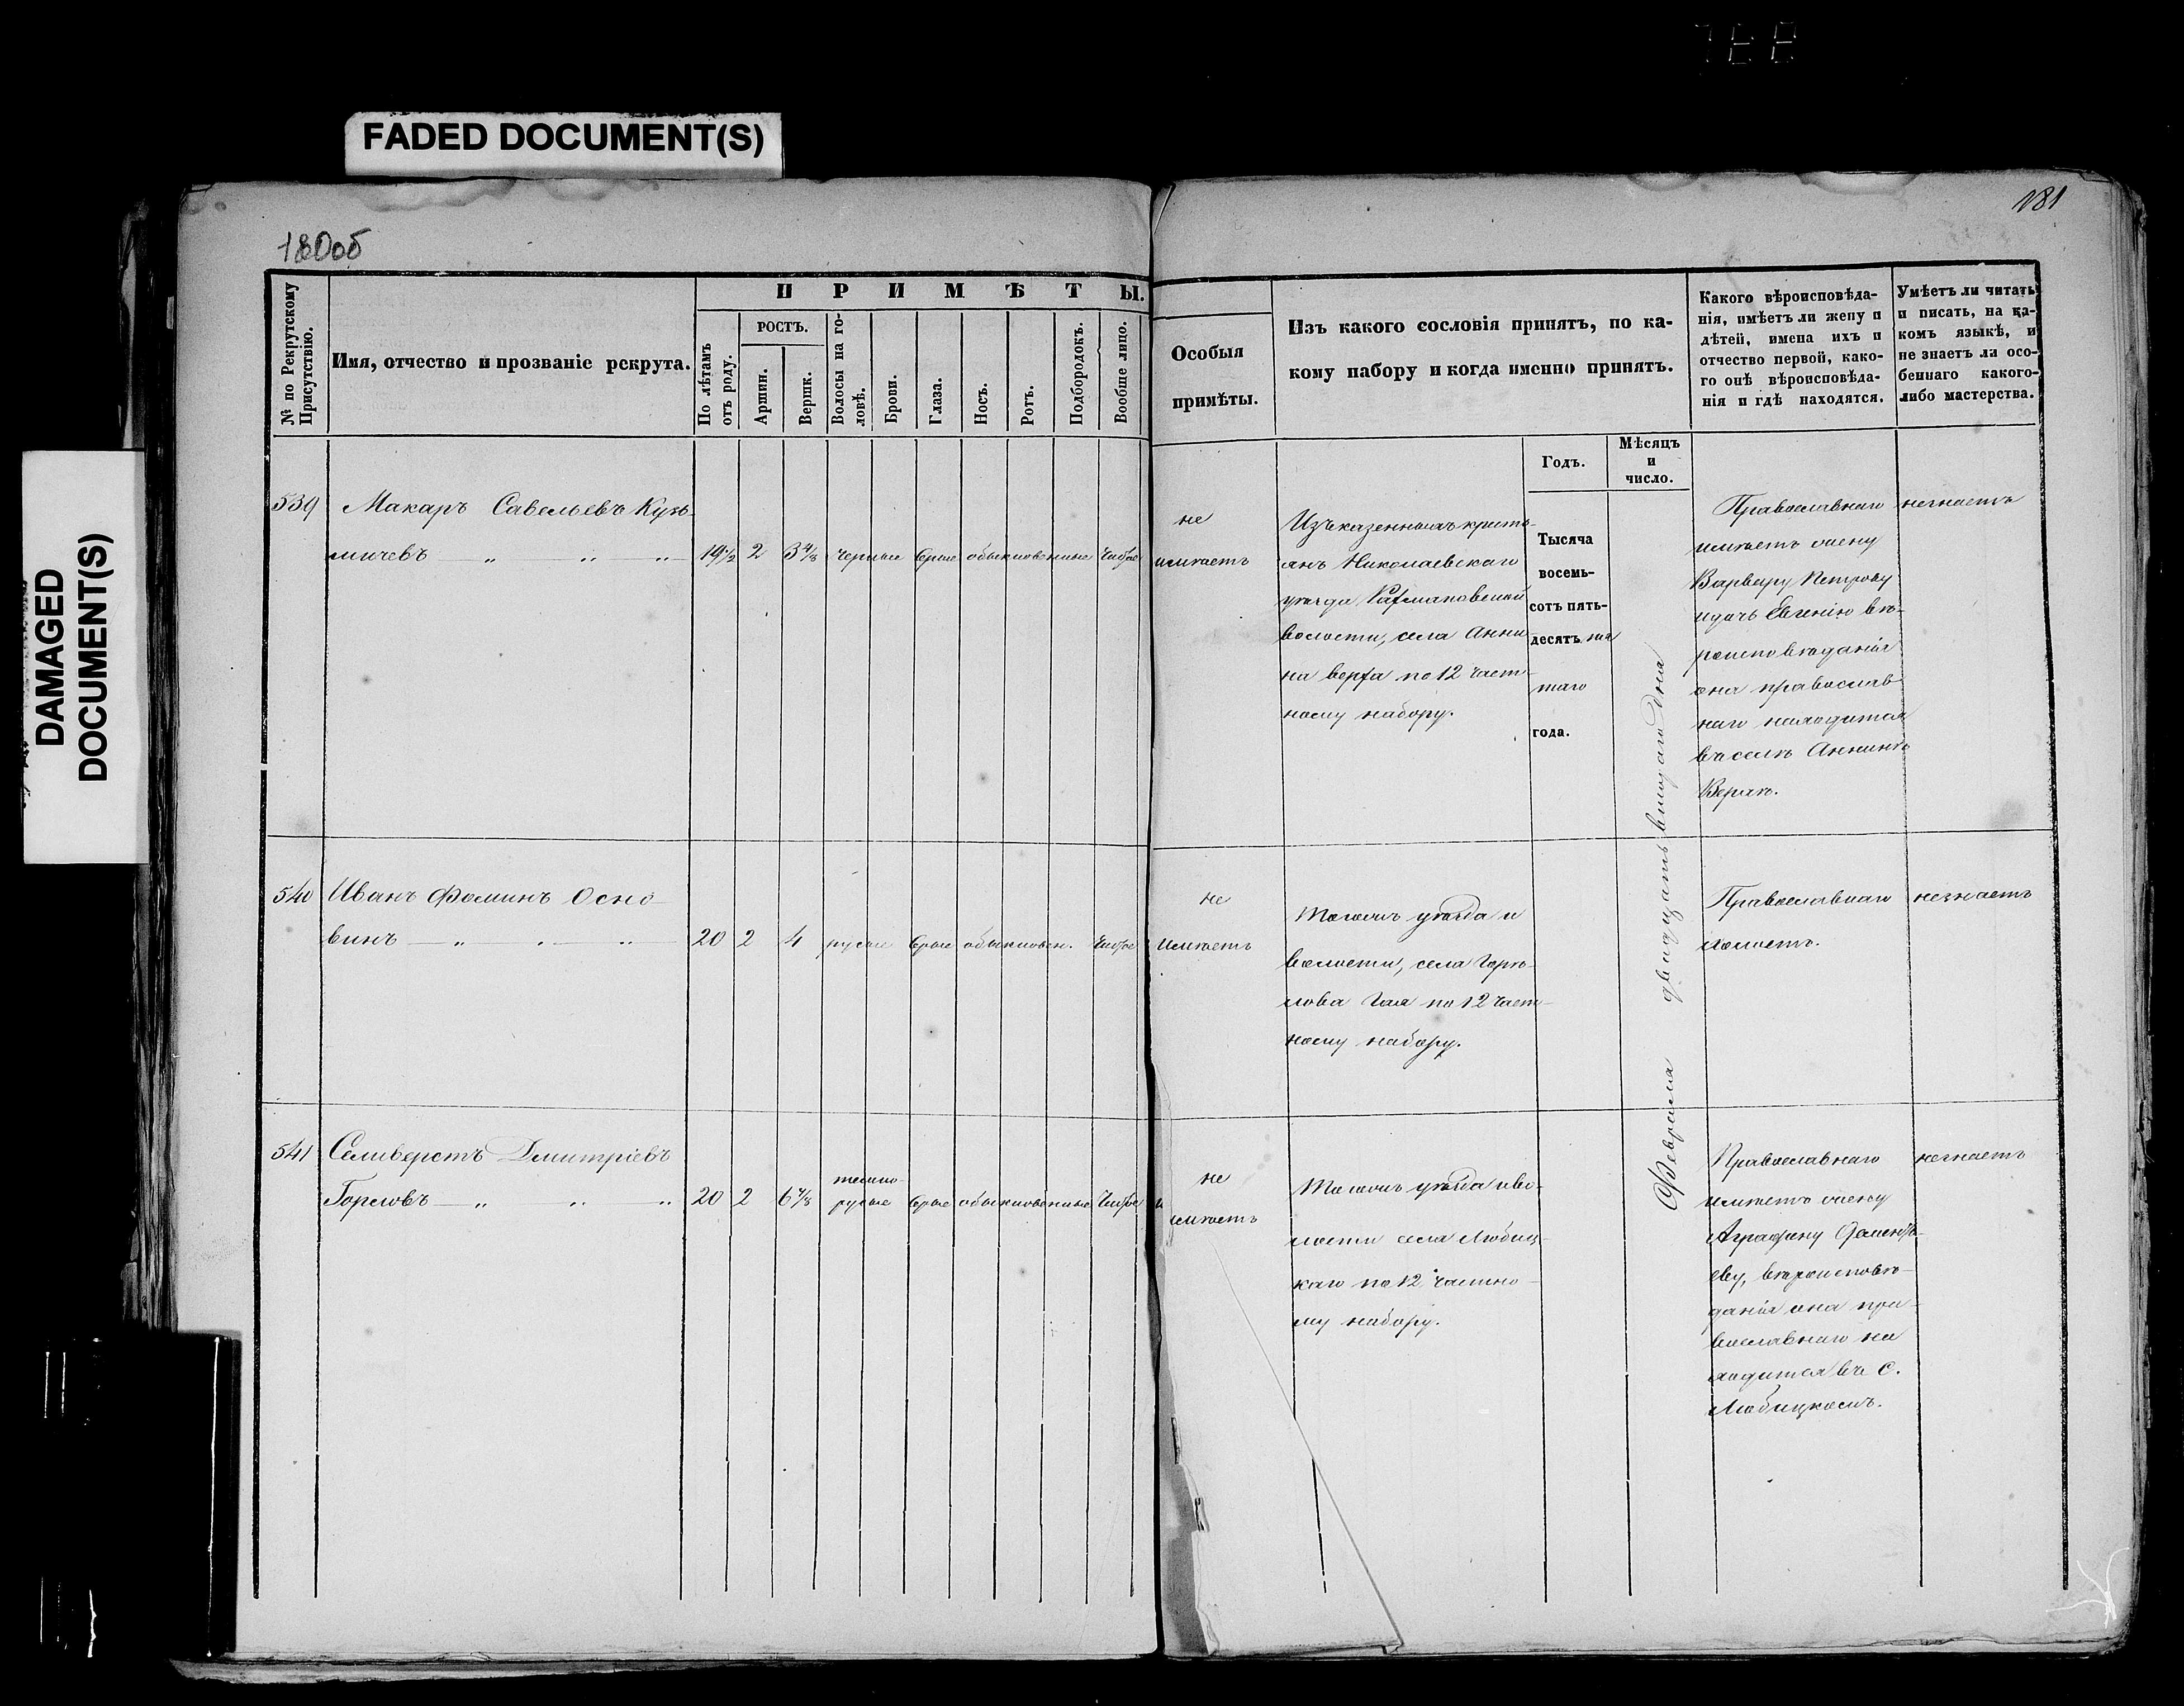 FADED DOCUMENT(S)
DAMAGED
DOCUMENT(S)
180об
181
№ по Рекрутскому
Присутствію.
Имя, отчество и прозваніе рекрута.
ПРИМѢТЫ.
По лѣтамъ
отъ роду.
РОСТЪ.
Аршин.
Вершк.
Волосы на го-
ловѣ.
Брови.
Глаза.
Носъ.
Ротъ.
Подбородокъ.
Вообще лицо.
Особыя
примѣты.
Изъ какого сословія принятъ, по ка-
кому набору и когда именно принятъ.
Годъ.
Мѣсяцъ
и
число.
Какого вѣроисповѣда-
нія, имѣетъ ли жену и
дѣтей, имена ихъ и
отчество первой, како-
го онѣ вѣроисповѣда-
нія и гдѣ находятся.
Умѣетъ ли читать
и писать, на ка-
комъ языкѣ, и
не знаетъ ли осо-
беннаго какого-
либо мастерства.
539
Макаръ Савельевъ Кузь-
мичевъ — „ „ „
19 1/2 2 3 4/8 черные сѣрые обыкновенные чистое
не
имѣетъ
Изъ казенныхъ кресть-
янъ Николаевскаго
уѣзда
волости, села Анни-
на верха по 12 част-
ному набору.
Тысяча
восемь-
сотъ пять-
десятъ пя
таго
года.
Февраля двадцать втораго дня
Православнаго
имѣетъ жену
Варвару Петрову
и дочь Евгенію вѣ-
роисповѣданія
она православ
наго находится
въ селѣ Аннинѣ
Верхѣ.
незнаетъ
540
Иванъ Фоминъ Осно-
винъ — „ „ „
20 2 4 русые сѣрые обыкновен. чистое
не
имѣетъ
Тогожъ уѣзда и
волости, села Горѣ-
лова Гая по 12 част-
ному набору.
Православнаго
холостъ.
незнаетъ
541
Селиверстъ Дмитріевъ
Горловъ — „ „ „
20 2 6 4/8 темно-
русые сѣрые обыкновенные чистое
не
имѣетъ
Тогожъ уѣзда и во-
лости села Любиц-
каго по 12 частно-
му набору.
Православнаго
имѣетъ жену
Аграфену
еву, вѣроисповѣ-
данія она пра-
вославнаго на
ходится въ с.
Любицкомъ.
незнаетъ